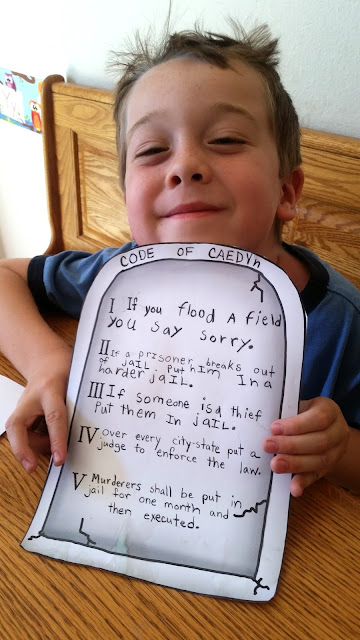 CODE OF CAEDYN
I If you flood A field
you say sorry.
II If a prisoner breaks out
of jaIL put hIM In a
harder jaIL.
III If someone isa thief
Put them In jaIL.
IV over every city-state put a
judge to enforce the law.
V Murderers shall be put in
jail for one month and
then executed.